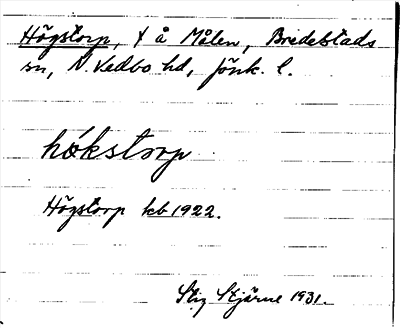 Högstorp, t å Målen, Bredestads
sn, N. Vedbo hd, Jönk. l.
hökstorp
Högstorp kb 1922.
Stig Stjärne 1931.